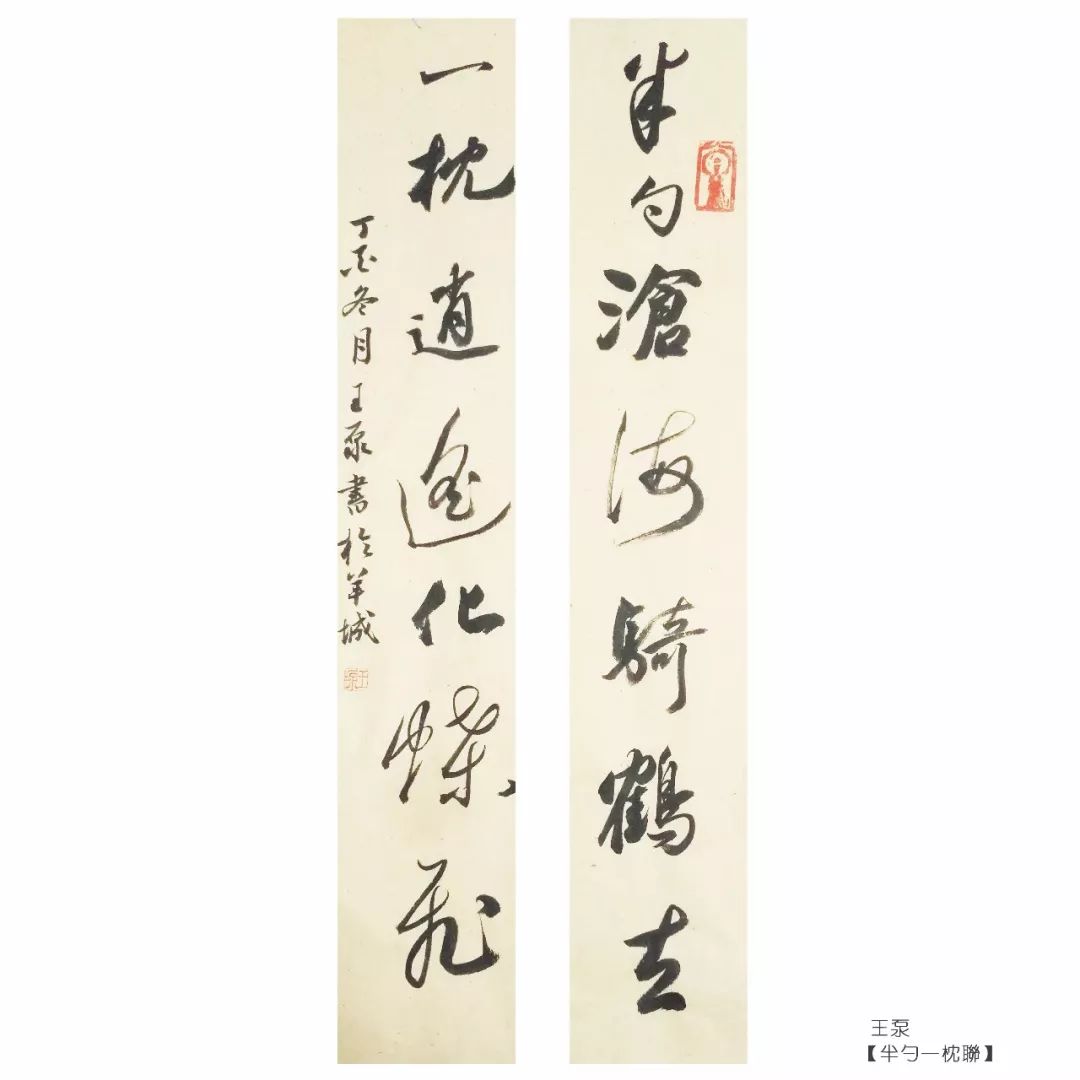 半勺滄海騎鶴去
一枕逍遙化蝶飛
丁酉冬月王泵書於羊城
王泵
王泵
【半勺一枕聯】